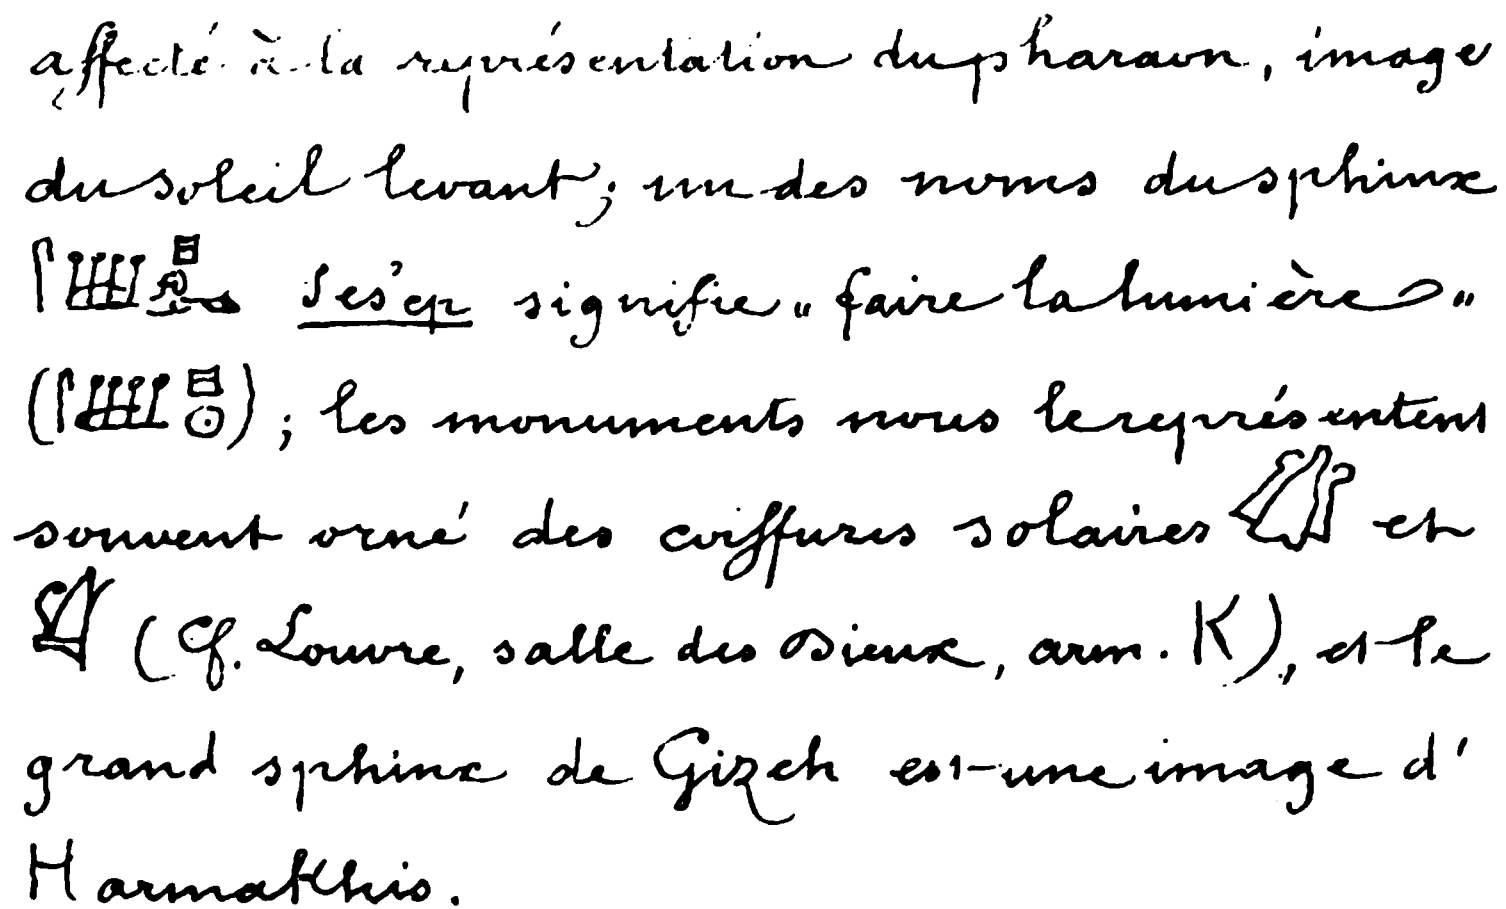 affecté à la représentation du pharaon, image
du soleil levant; un des noms du sphinx
𓋴𓆷𓊪 Ses'ep signifie „ faire la lumière "
(𓋴𓆷𓊪𓇳) ; les monuments nous le représentent
souvent orné des coiffures solaires et
(Cf. Louvre, salle des Dieux, arm. K), et le
grand sphinx de Gizeh est une image d'
Harmakhis.